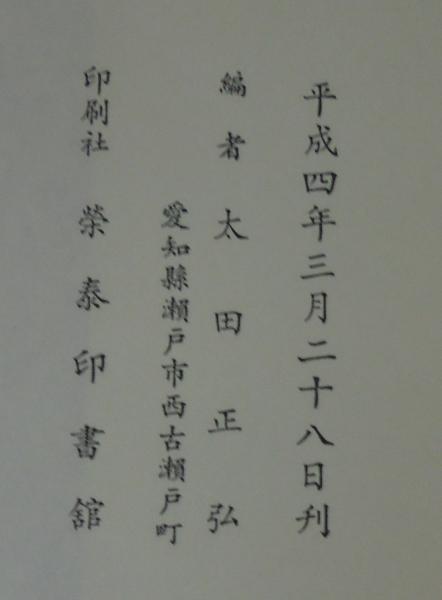 平成四年三月二十八日刊
編者 太田正弘
愛知縣瀬戸市西古瀬戸町
印刷社 榮泰印書館